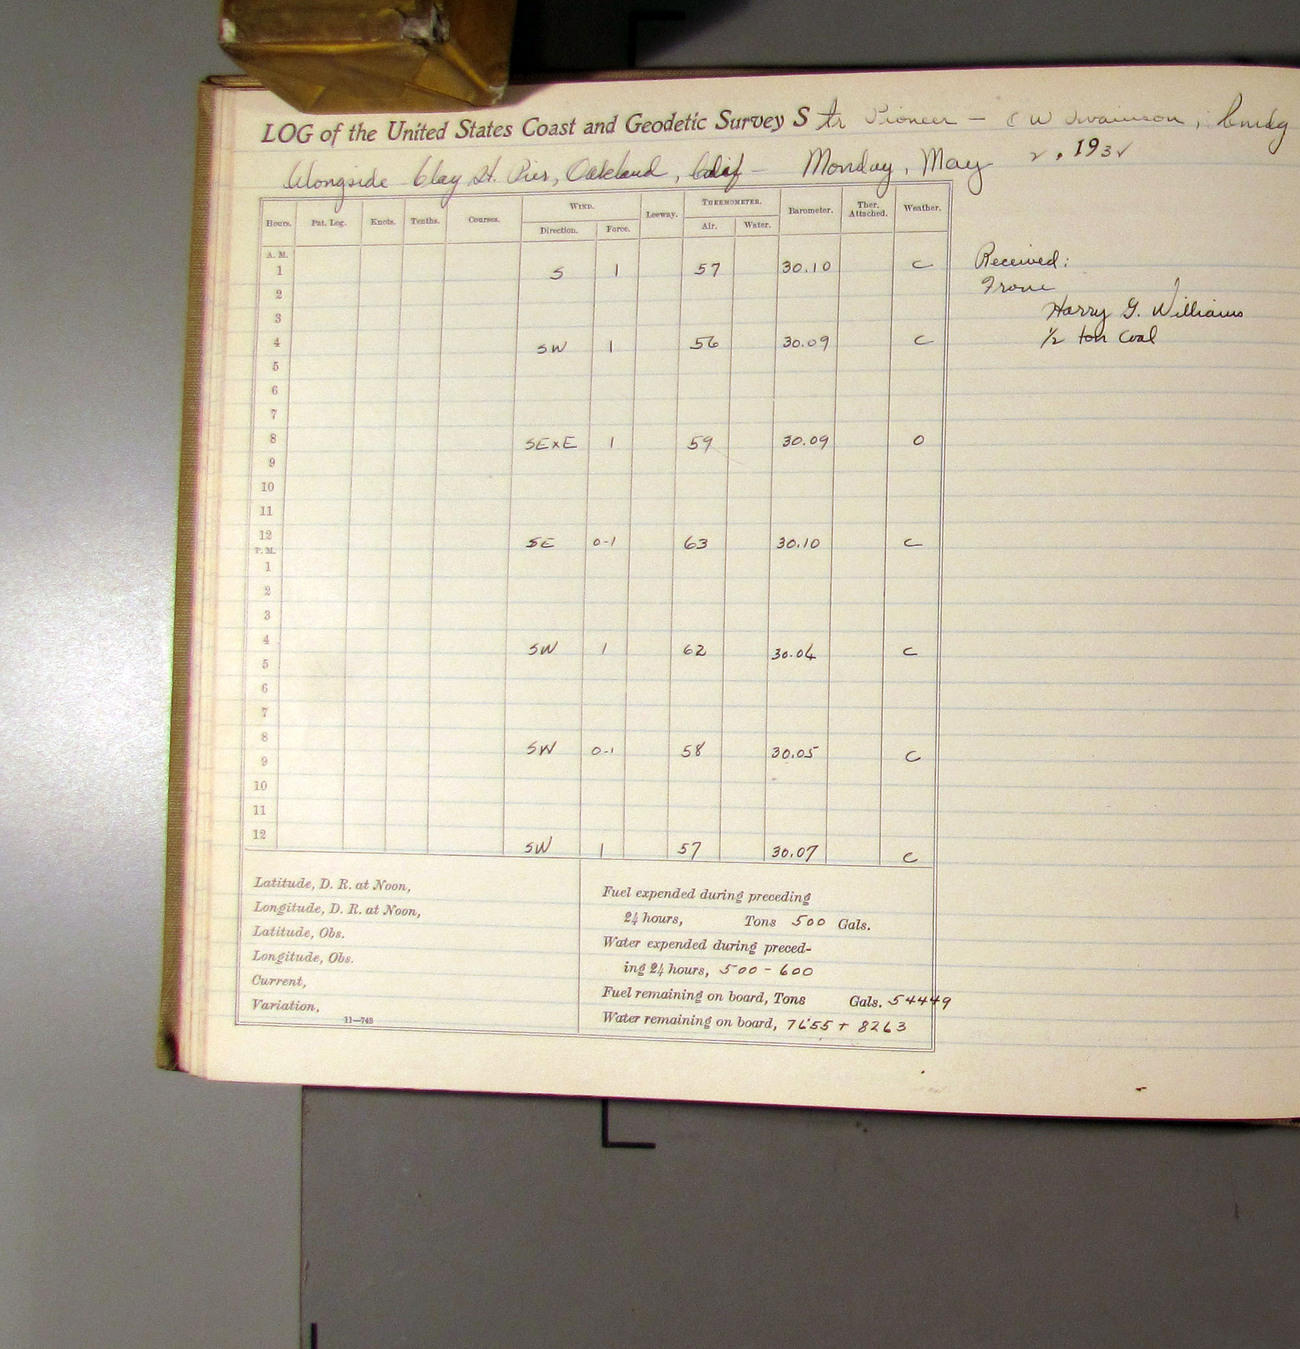 LOG of the United States Coast and Geodetic Survey S tr Pioneer - C W Swainson, Cmdg
Alongside Clay St. Pier, Oakland, Calif - Monday, May 2, 1932
Hours. Pat. Log. Knots. Tenths. Courses. WIND. Leeway. THERMOMETER. Barometer. Ther. Attached. Weather.
Direction. Force. Air. Water.
A. M.
1 S 1 57 30.10 C
2
3
4 SW 1 56 30.09 C
5
6
7
8 SExE 1 59 30.09 O
9
10
11
12 SE 0-1 63 30.10 C
P. M.
1
2
3
4 SW 1 62 30.04 C
5
6
7
8 SW 0-1 58 30.05 C
9
10
11
12 SW 1 57 30.07 C
Received:
From
Harry G. Williams
1/2 ton Coal
Latitude, D. R. at Noon,
Longitude, D. R. at Noon,
Latitude, Obs.
Longitude, Obs.
Current,
Variation,
11—743
Fuel expended during preceding
24 hours, Tons 500 Gals.
Water expended during preced-
ing 24 hours, 500 - 600
Fuel remaining on board, Tons Gals. 54449
Water remaining on board, + 8263